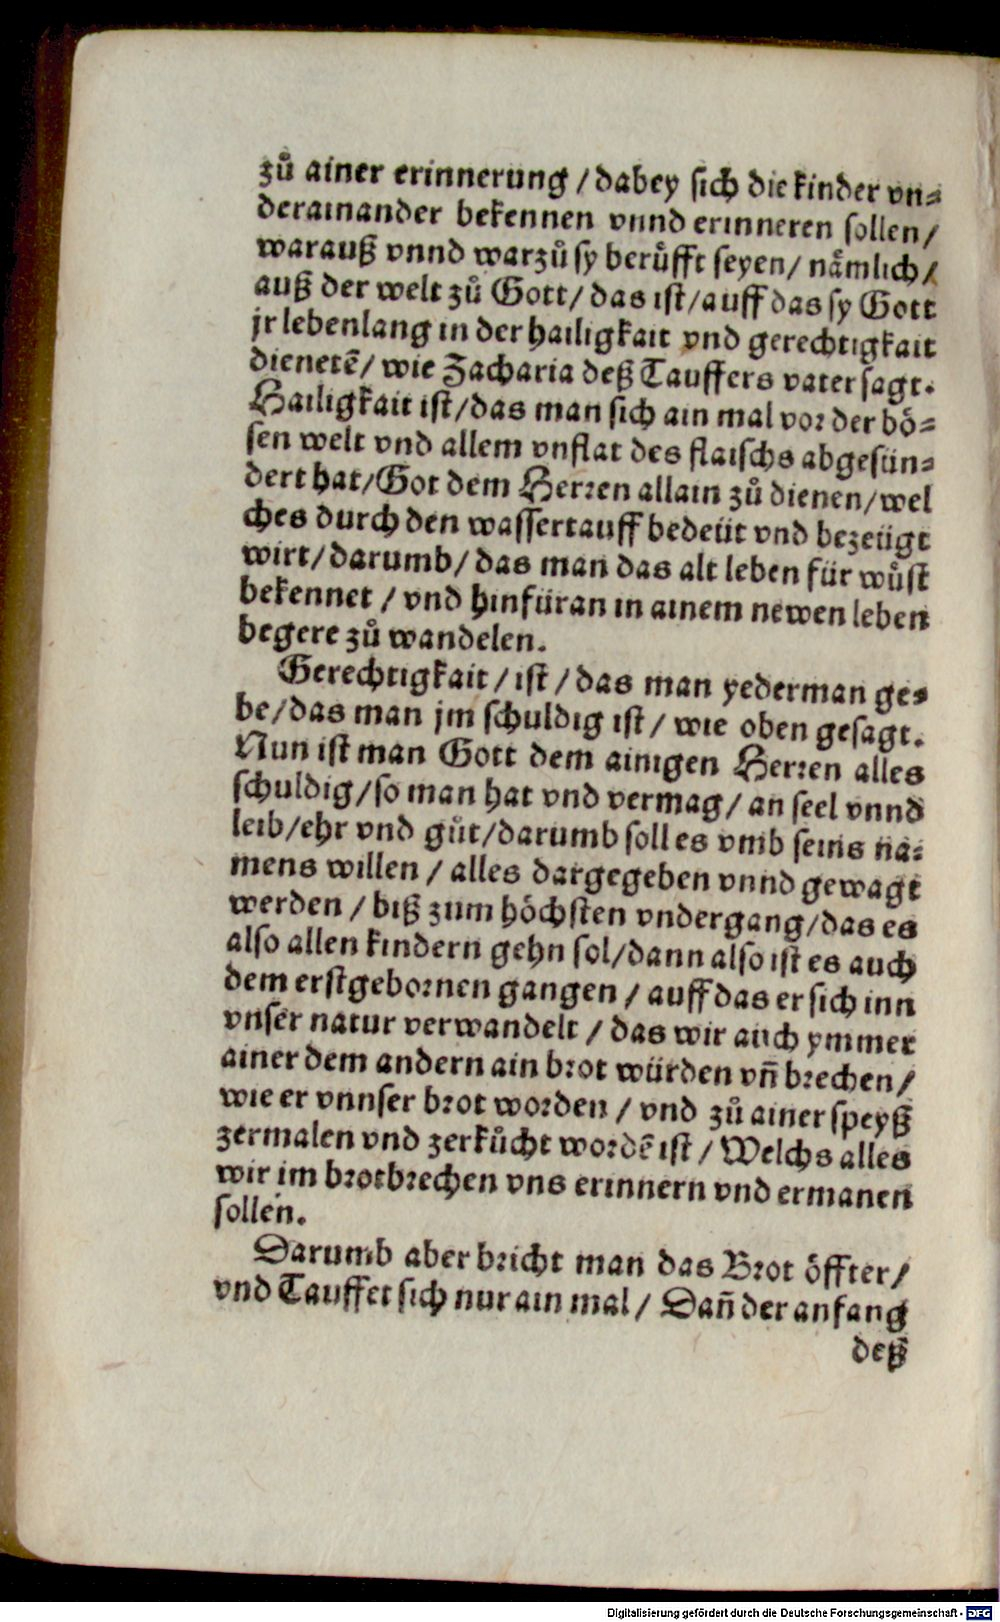 zů ainer erinnerung / dabey sich die kinder vn⸗
derainander bekennen vnnd erinneren sollen /
warauß vnnd warzů sy berůfft seyen / nämlich /
auß der welt zů Gott / das ist / auff das sy Gott
jr lebenlang in der hailigkait vnd gerechtigkait
dienetē / wie Zacharia deß Tauffers vater sagt.
Hailigkait ist / das man sich ain mal vor der bö⸗
sen welt vnd allem vnflat des flaischs abgesün⸗
dert hat / Got dem Herren allain zů dienen / wel
ches durch den wassertauff bedeüt vnd bezeügt
wirt / darumb / das man das alt leben für wůst
bekennet / vnd hinfüran in ainem newen leben
begere zů wandelen.
Gerechtigkait / ist / das man yederman ge⸗
be / das man jm schuldig ist / wie oben gesagt.
Nun ist man Gott dem ainigen Herren alles
schuldig / so man hat vnd vermag / an seel vnnd
leib / ehr vnd gůt / darumb soll es vmb seins na⸗
mens willen / alles dargegeben vnnd gewagt
werden / biß zum höchsten vndergang / das es
also allen kindern gehn sol / dann also ist es auch
dem erstgebornen gangen / auff das er sich inn
vnser natur verwandelt / das wir auch ymmer
ainer dem andern ain brot würden vñ brechen /
wie er vnnser brot worden / vnd zů ainer speyß
zermalen vnd zerkůcht wordē ist / Welchs alles
wir im brotbrechen vns erinnern vnd ermanen
sollen.
Darumb aber bricht man das Brot öffter /
vnd Tauffet sich nur ain mal / Dañ der anfang
deß
Digitalisierung gefördert durch die Deutsche Forschungsgemeinschaft - DFG